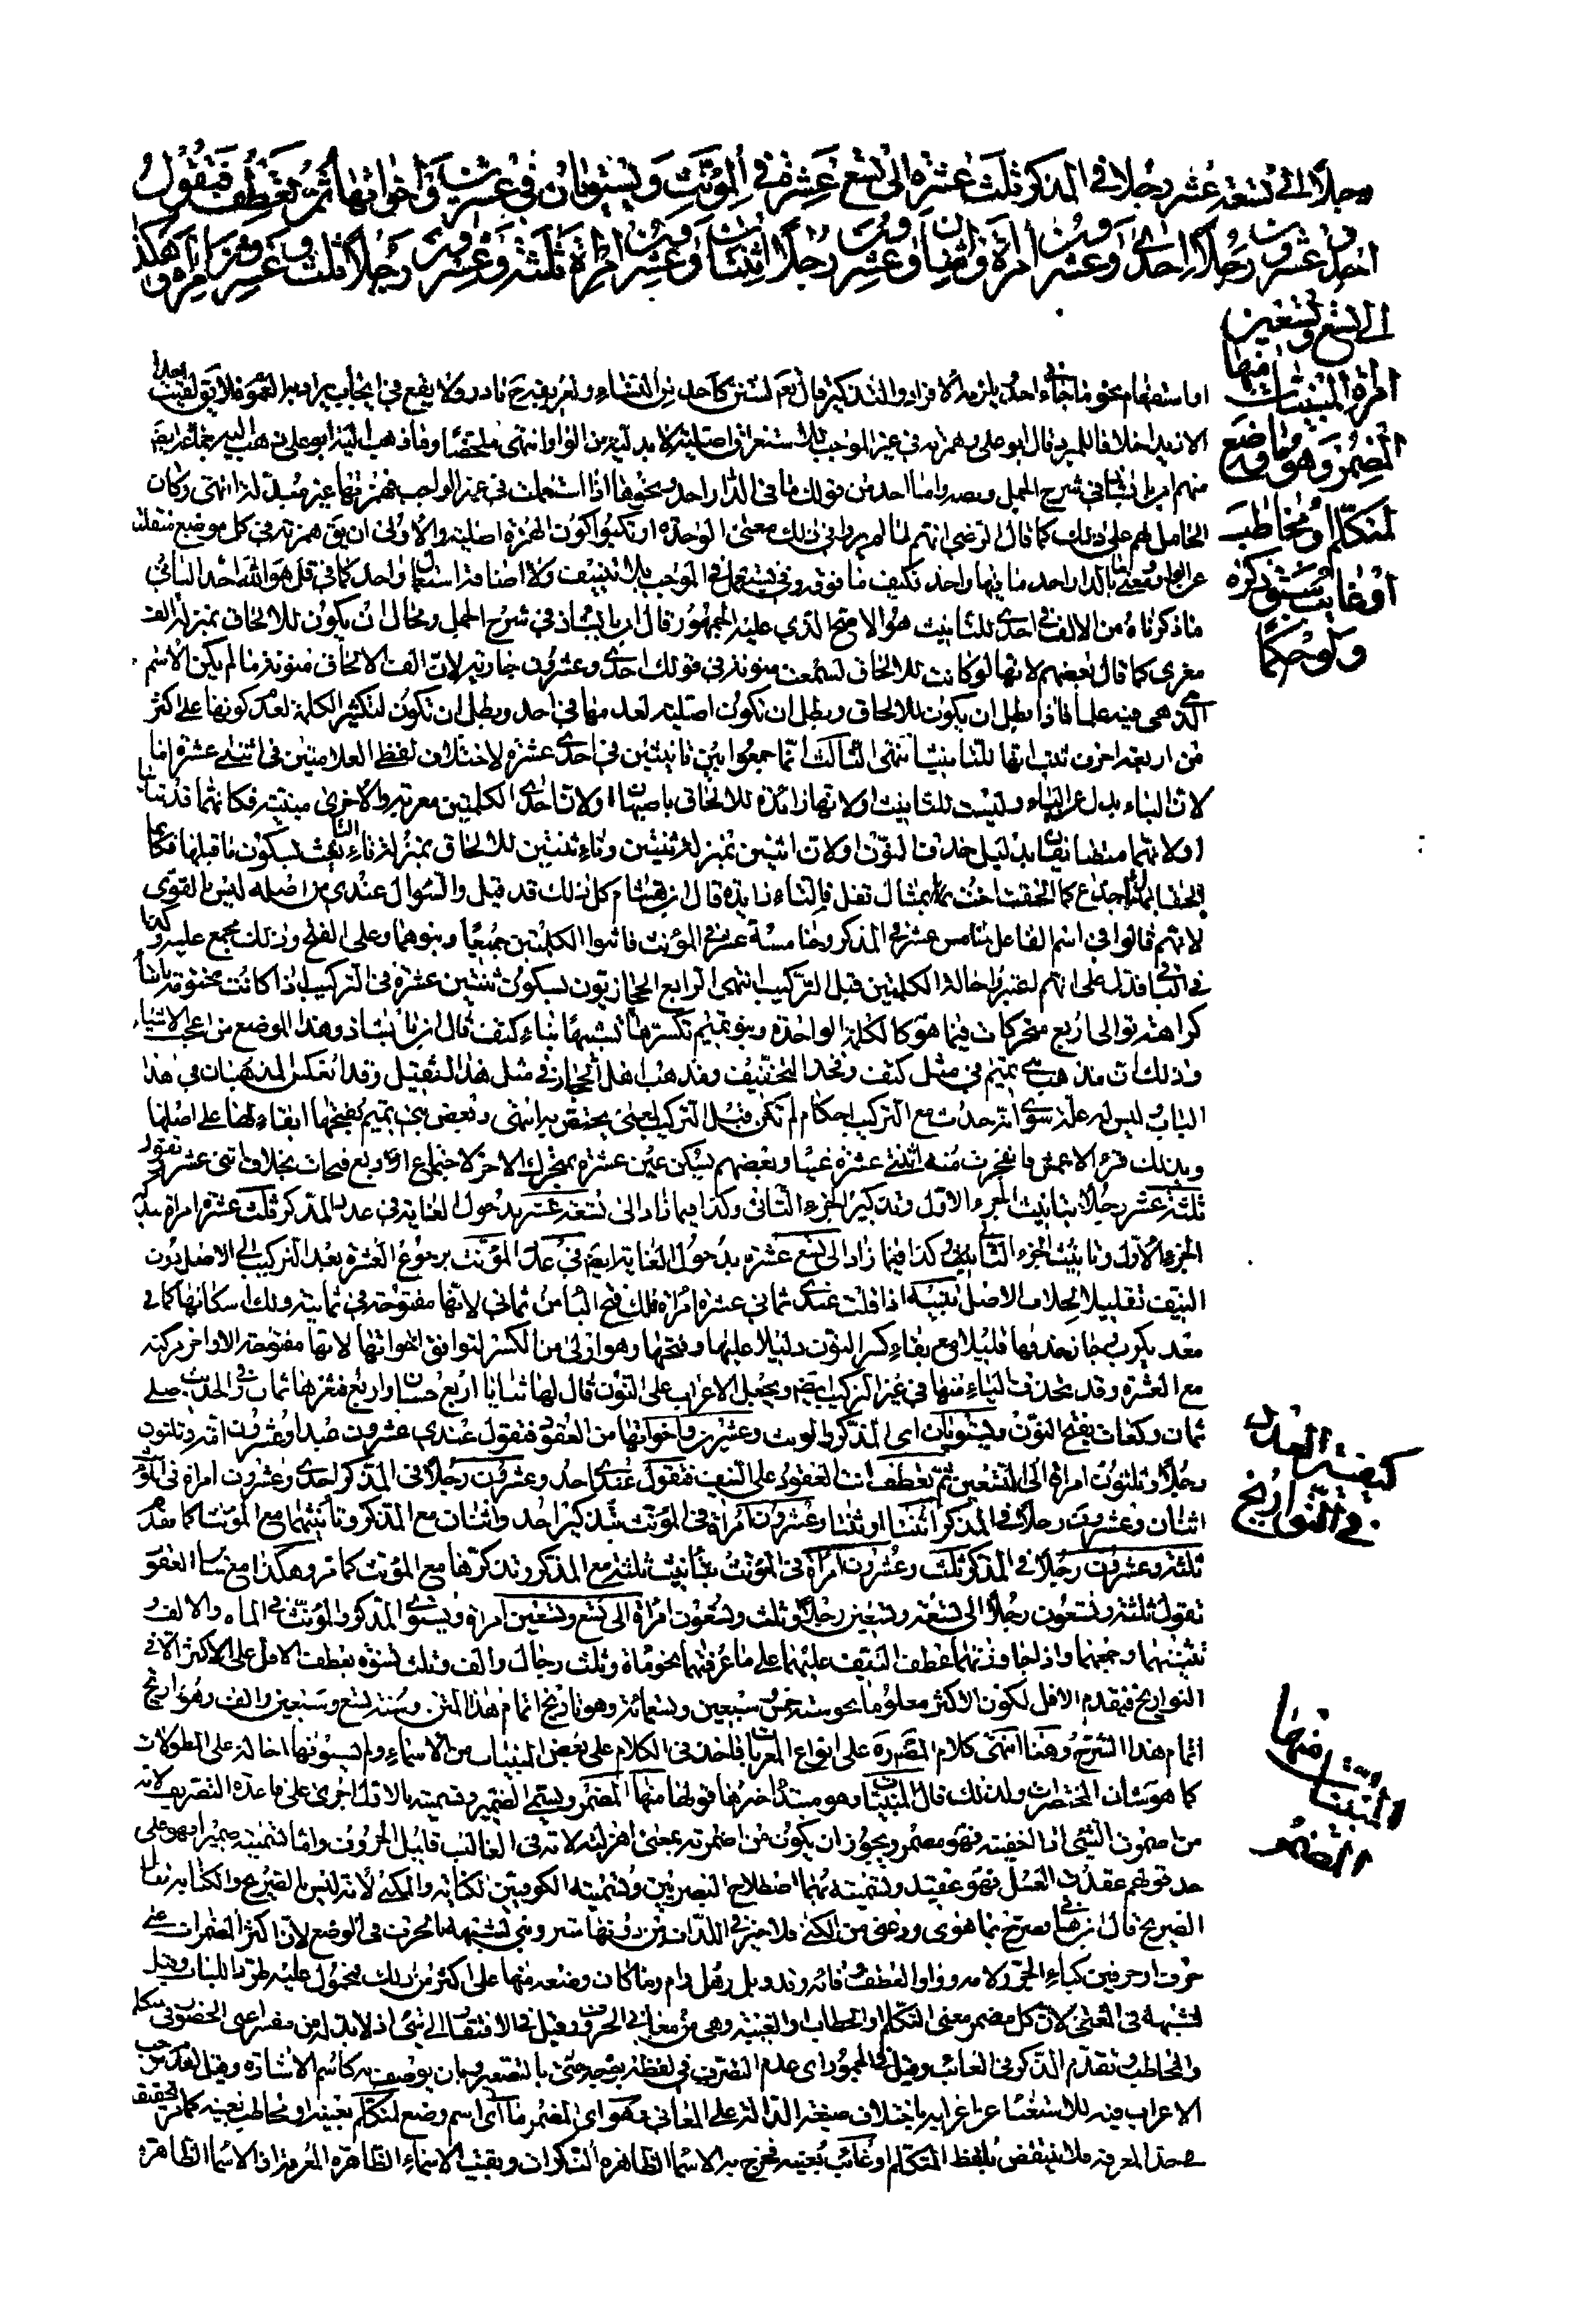 رجلا الى تسعة عشر رجلا في المذكر ثلث عشرة الى تسع عشرة في المؤنث ويستويان في عشرين واخواتها ثم تعطف فتقول
احد وعشرون رجلا احدى وعشرون امرأة واثنان وعشرون رجلا اثنتان وعشرون امرأة ثلثة وعشرون رجلا ثلث وعشرون امرأة هكذا
الى تسع وتسعين
امرأة المبنيات منها
المضمر وهو ما وضع
لمتكلم او مخاطب
او غائب سبق ذكره
ولو حكما
او استفهام نحو ما جاءني احد يلزمه الافراد والتذكير قال نعم لستن كاحد من النساء وتعريفه نادر ولا يقع في ايجاب يراد به العموم فلا يقال لقيت احدا
الا زيدا خلافا للمبرد قال ابو علي وهمزته في غير الموجب
منهم في شرح الجمل احد من قولك ما في الدار احد ونحوها اذا استعملت في غير الواجب فهمزتها غير مبدلة انتهى وكان
الحامل لهم على ذلك كما قال الرضي انهم لما لم يروا في ذلك معنى الوحدة ارتكبوا كون الهمزة اصلية والاولى ان همزته في كل موضع منقلبة
عن الواو بالدار احد ما فيها واحد فكيف ما فوقه وفي يستعمل في الموجب بلا تنييف ولا اضافة استعمال واحد كما في قل هو الله احد الثاني
ما ذكرناه من الالف في احدى للتانيث هو الاصح الذي عليه الجمهور قال ابن بابشاذ في شرح الجمل ومحال ان يكون للالحاق بمنزلة الف
معزى كما قال بعضهم لانها لو كانت للالحاق لسمعت منونة في قولك احدى وعشرون جارية لان الف الالحاق منونة ما لم يكن الاسم
الذي هي فيه علما فاذا بطل ان يكون للالحاق وبطل ان تكون اصلية لعدمها في احد وبطل ان تكون لتكثير الكلمة لعدم كونها على اكثر
من اربعة احرف ثبت انها للتانيث انتهى الثالث انما جمعوا بين تانيثين في احدى عشرة لاختلاف لفظ العلامتين في اثنتي عشرة اما
لان التاء بدل عن الياء وليست للتانيث او لانها زائدة للالحاق او لان احدى الكلمتين معربة والاخرى مبنية فكانهما قد تباينا
او لانهما متضايفان بدليل حذف النون او لان اثنتين بمنزلة ثنتين وتاء ثنتين للالحاق بمنزلة تاء بنت لسكون ما قبلها فكانها
الحقت بجذع كما الحقت اخت بمثال قفل فالتاء زايدة قال ابن هشام كل ذلك قد قيل والسؤال عندي من اصله ليس بالقوي
لانهم قالوا في اسم الفاعل خامس عشر في المذكر وخامسة عشرة في المؤنث فانثوا الكلمتين جميعا وبنوهما على الفتح وذلك مجمع عليه وكذا
في فدل على انهم اعتبروا حالة الكلمتين قبل التركيب انتهى الرابع الحجازيون يسكنون شين عشرة في التركيب اذا كانت مختومة بالتاء
كراهة توالى اربع متحركات فيما هو كالكلمة الواحدة وبنو تميم تكسرها تشبيها بتاء كتف قال ابن بابشاذ وهذا الموضع من اعجب الاشياء
وذلك ان مذهب بني تميم في مثل كتف وفخذ التخفيف ومذهب اهل الحجاز في مثل هذا التثقيل وقد انعكس المذهبان في هذا
الباب وليس له علة سوى انه حدث مع التركيب احكام لم تكن قبل التركيب لمعنى يختص به انتهى وبعض بني تميم يفتحها ابقاء لها على اصلها
وبذلك قرء الاعمش فانفجرت منه اثنتي عشرة عينا وبعضهم يسكن عين عشرة بتحرك الاخر لاجتماع اربع فتحات بخلاف اثني عشر وتقول
ثلثة عشر رجلا بتانيث الجزء الاول وتذكير الجزء الثاني وكذا فيما زاد الى تسعة عشر بدخول الغاية في عدد المذكر ثلث عشرة امراة بتذكير
الجزء الاول وتانيث الجزء الثاني وكذا فيما زاد الى تسع عشرة بدخول الغاية ايضا في عدد المؤنث برجوع العشرة بعد التركيب الى الاصل دون
النيف تقليلا لخلاف الاصل تنبيه اذا قلت عندي ثماني عشرة امراة فلك فتح الياء من ثماني لانها مفتوحة في ثمانية ولك اسكانها كما في
معديكرب جاز حذفها قليلا مع بقاء كسر النون دليلا عليها وفتحها وهو اولى من الكسر لتوافق اخواتها لانها مفتوحة الاواخر مركبة
مع العشرة وقد تحذف الياء منها في غير التركيب ايضا ويجعل الاعراب على النون قال لها ثنايا اربع حسان واربع فثغرها ثمان وفي الحديث صلى
ثمان ركعات بفتح النون ويستويان اى المذكر والمؤنث في عشرين واخواتها من العقود فتقول عندي عشرون عبدا وعشرون امة وثلثون
رجلا وثلثون امراة الى التسعين ثم تعطف انت العقود على النيف فتقول عندي احد وعشرون رجلا في المذكر احدى وعشرون امراة في المؤنث
اثنان وعشرون رجلا في المذكر اثنتان او ثنتان وعشرون امراة في المؤنث بتذكير احد واثنان مع المذكر وتانيثهما مع المؤنث كما تقدم
ثلثة وعشرون رجلا في المذكر ثلث وعشرون امراة في المؤنث بتانيث ثلثة مع المذكر وتذكيرها مع المؤنث كما مر وهكذا مع سائر العقود
تقول ثلثة وتسعون رجلا الى تسعة وتسعين رجلا وثلث وتسعون امراة الى تسع وتسعين امراة ويستوى المذكر والمؤنث في المائة والالف و
تثنيتهما وجمعهما واذا جاوزتهما عطف النيف عليهما على ما عرفتهما نحو مائة وثلث رجال والف وثلث نسوة بعطف الاقل على الاكثر الا في
التواريخ فيقدم الاقل لكون الاكثر معلوما نحو سنة خمس سبعين وتسعمائة وهو تاريخ اتمام هذا المتن وسنة تسع وسبعين والف وهو تاريخ
اتمام هذا الشرح وهنا انتهى كلام المص ره على انواع المعربات فاخذ في الكلام على بعض المبنيات من الاسماء ولم يستوفها احالة على المطولات
كما هو شان المختصرات ولذلك قال المبنيات وهو مبتدا خبرها قوله منها المضمر ويسمى الضمير وتسميته بالاول اجرى على قاعدة التصريف لانه
من اضمرت الشئ اذا اخفيته فهو مضمر ويجوز ان يكون من اضمرته بمعنى اهزلته لانه في الغالب قليل الحروف واما تسميته ضميرا فهو على
حد قولهم عقدت العسل فهو عقيد وتسميته بهما اصطلاح البصريين وتسمية الكوفيين الكناية والمكنى لانه ليس بالصريح والكناية تقابل
الصريح قال ابن هانئ فصرح بما تهوى ودعني من الكنى فلا خير في اللذات من دونها ستر وبني لشبهه بالحرف في الوضع لان اكثر المضمرات على
حرف او حرفين كباء الجر ولامه وواو العطف وفائه وقد وبل وهل وام وما كان وضعه منها على اكثر من ذلك فمحمول عليه طردا للباب وقيل
لشبهه في المعنى لان كل مضمر معنى التكلم او الخطاب او الغيبة وهي من معاني الحروف وقيل في الافتقار الى شئ اذ لا بد له من مفسر اعني الحضور في المتكلم
والمخاطب وتقدم الذكر في الغائب وقيل في الجمود اى عدم التصرف في لفظه بوجه حتى بالتصغير وبان يوصف به كاسم الاشارة وقيل لعدم موجب
الاعراب فيه للاستغناء عن اعرابه باختلاف صيغه الدالة على المعاني وهو اى المضمر ما اى اسم وضع لمتكلم بعينه او مخاطب بعينه كما مر تحقيقه
في حد المعرفة فلا ينتقض بلفظ المتكلم او غائب بعينه فخرج به الاسماء الظاهرة النكرات وبقيت الاسماء الظاهرة المعرفة اذ الاسماء الظاهرة
كيفية العدد
في التواريخ
المبنيات منها
المضمر